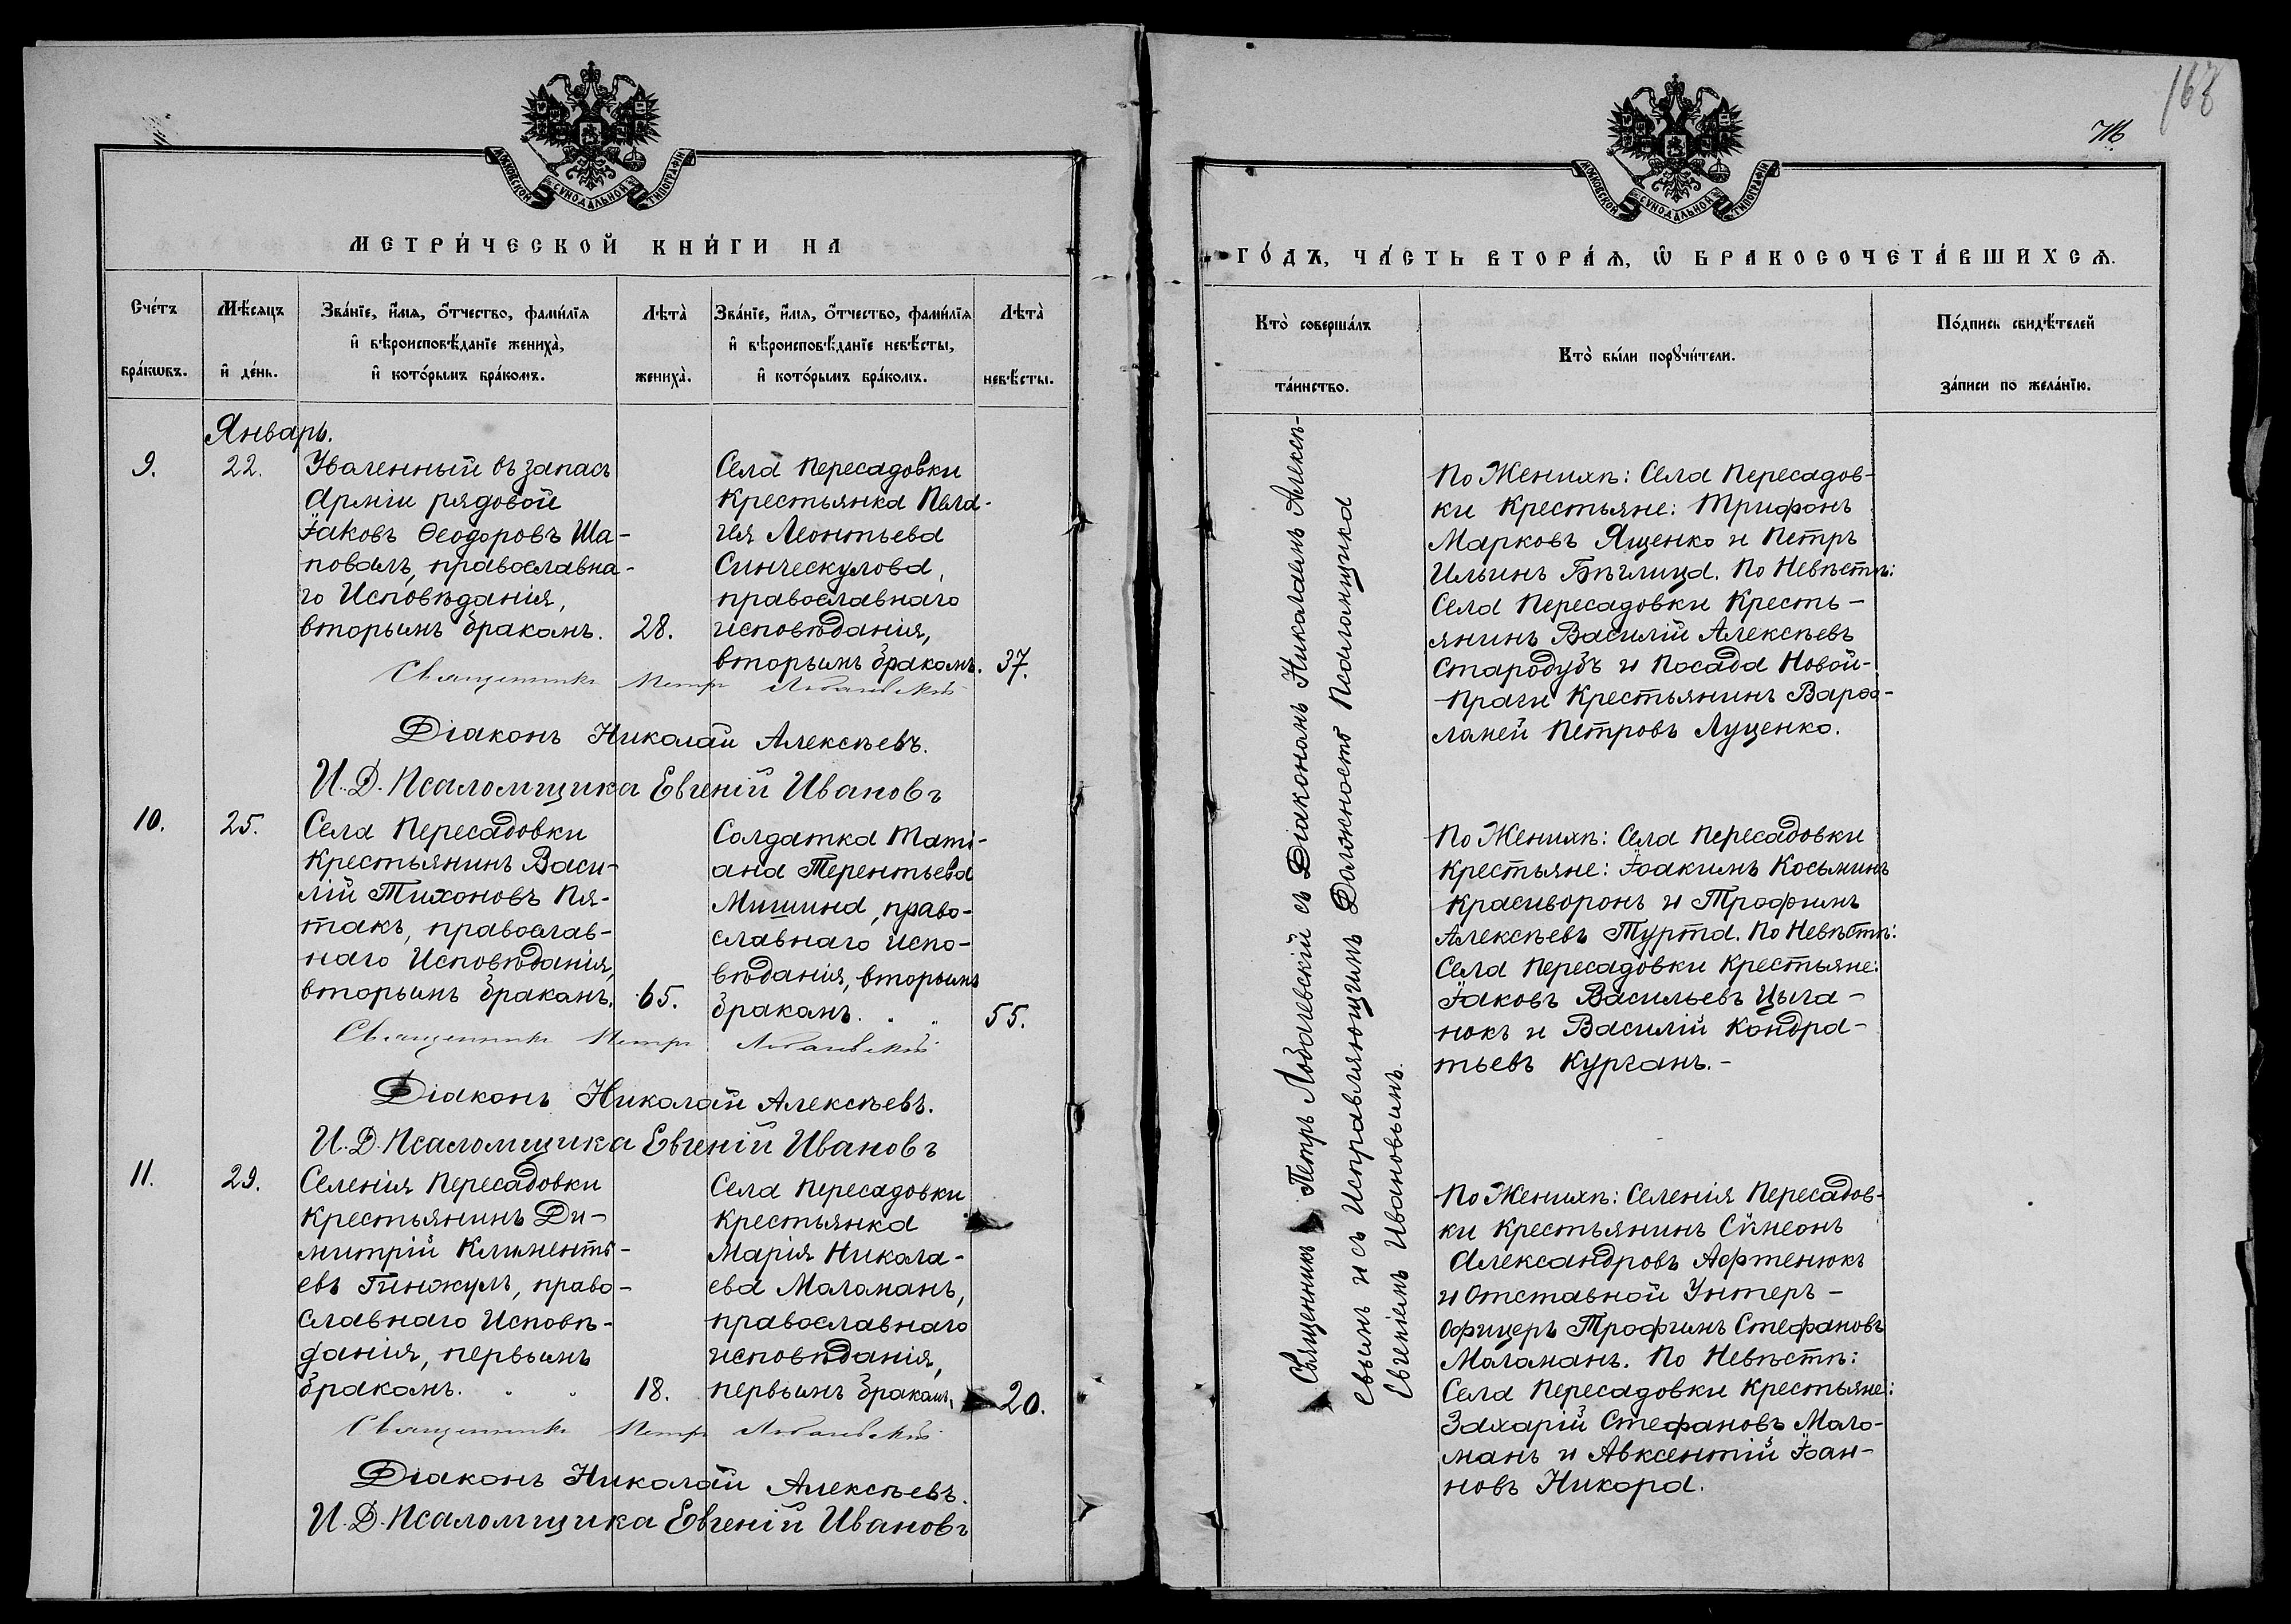 168
МОСКОВСКОЙ СѴНОДАЛЬНОЙ ТИПОГРАФІИ
МЕТРИ́ЧЕСКОЙ КНИ́ГИ НА
Сче́тъ бра́кѡвъ.
Мѣ́сяцъ и҆ де́нь.
Зва́нїе, и҆́мѧ, ѻ҆́тчество, фами́лїѧ
и҆ вѣроисповѣ́данїе жениха̀,
и҆ кото́рымъ бра́комъ.
Лѣта̀ жениха̀.
Зва́нїе, и҆́мѧ, ѻ҆́тчество, фами́лїѧ
и҆ вѣроисповѣ́данїе невѣ́сты,
и҆ кото́рымъ бра́комъ.
Лѣта̀ невѣ́сты.
Январь.
9.
22.
Уволенный въ запасъ
Арміи рядовой
Іаковъ Ѳеодоровъ Ша-
повалъ, православна-
го Исповѣданія,
вторымъ бракомъ.
28.
Села Пересадовки
Крестьянка Пела-
гея Леонтьева
Синческулова,
православнаго
исповѣданія,
вторымъ бракомъ.
37.
Священникъ Петръ Лобачевскій
Діаконъ Николай Алексѣевъ.
И. Д. Псаломщика Евгеній Ивановъ
10.
25.
Села Пересадовки
Крестьянинъ Васи-
лій Тихоновъ Пя-
такъ, православ-
наго Исповѣданія,
вторымъ бракомъ.
65.
Солдатка Таті-
ана Терентьева
Мишина, право-
славнаго испо-
вѣданія, вторымъ
бракомъ.
55.
Священникъ Петръ Лобачевскій
Діаконъ Николай Алексѣевъ.
И. Д. Псаломщика Евгеній Ивановъ
11.
29.
Селенія Пересадовки
Крестьянинъ Ди-
митрій Клименті-
евъ Гинжулъ, право-
славнаго Исповѣ-
данія, первымъ
бракомъ.
18.
Села Пересадовки
Крестьянка
Марія Никола-
ева Маломанъ,
православнаго
исповѣданія,
первымъ бракомъ.
20.
Священникъ Петръ Лобачевскій
Діаконъ Николай Алексѣевъ.
И. Д. Псаломщика Евгеній Ивановъ
МОСКОВСКОЙ СѴНОДАЛЬНОЙ ТИПОГРАФІИ
ГО́ДЪ, ЧА́СТЬ ВТОРА́Ѧ, Ѡ҆ БРАКОСОЧЕТА́ВШИХСѦ.
Кто̀ соверша́лъ та́инство.
Кто̀ бы́ли порꙋчи́тели.
По́дпись свидѣ́телей за́писи по жела́нїю.
Священникъ Петръ Лобачевскій съ Діакономъ Николаемъ Алексѣ-
евымъ и съ Исправляющимъ Должность Псаломщика
Евгеніемъ Ивановымъ.
По Женихѣ: Села Пересадов-
ки Крестьяне: Трифонъ
Марковъ Ященко и Петръ
Ильинъ Бѣглица. По Невѣстѣ:
Села Пересадовки Кресть-
янинъ Василій Алексѣевъ
Стародубъ и Посада Новой-
Праги Крестьянинъ Варѳо-
ломей Петровъ Луценко.
По Женихѣ: Села Пересадовки
Крестьяне: Іоакимъ Косьминъ
Красиворонъ и Трофимъ
Алексѣевъ Турта. По Невѣстѣ:
Села Пересадовки Крестьяне:
Іаковъ Васильевъ Цыга-
нокъ и Василій Кондра-
тьевъ Курганъ.-
По Женихѣ: Селенія Пересадов-
ки Крестьянинъ Сѷмеонъ
Александровъ Афтенюкъ
и Отставной Унтеръ-
Офицеръ Трофимъ Стефановъ
Маломанъ. По Невѣстѣ:
Села Пересадовки Крестьяне:
Захарій Стефановъ Мало-
манъ и Авксентій Іоан-
новъ Никора.